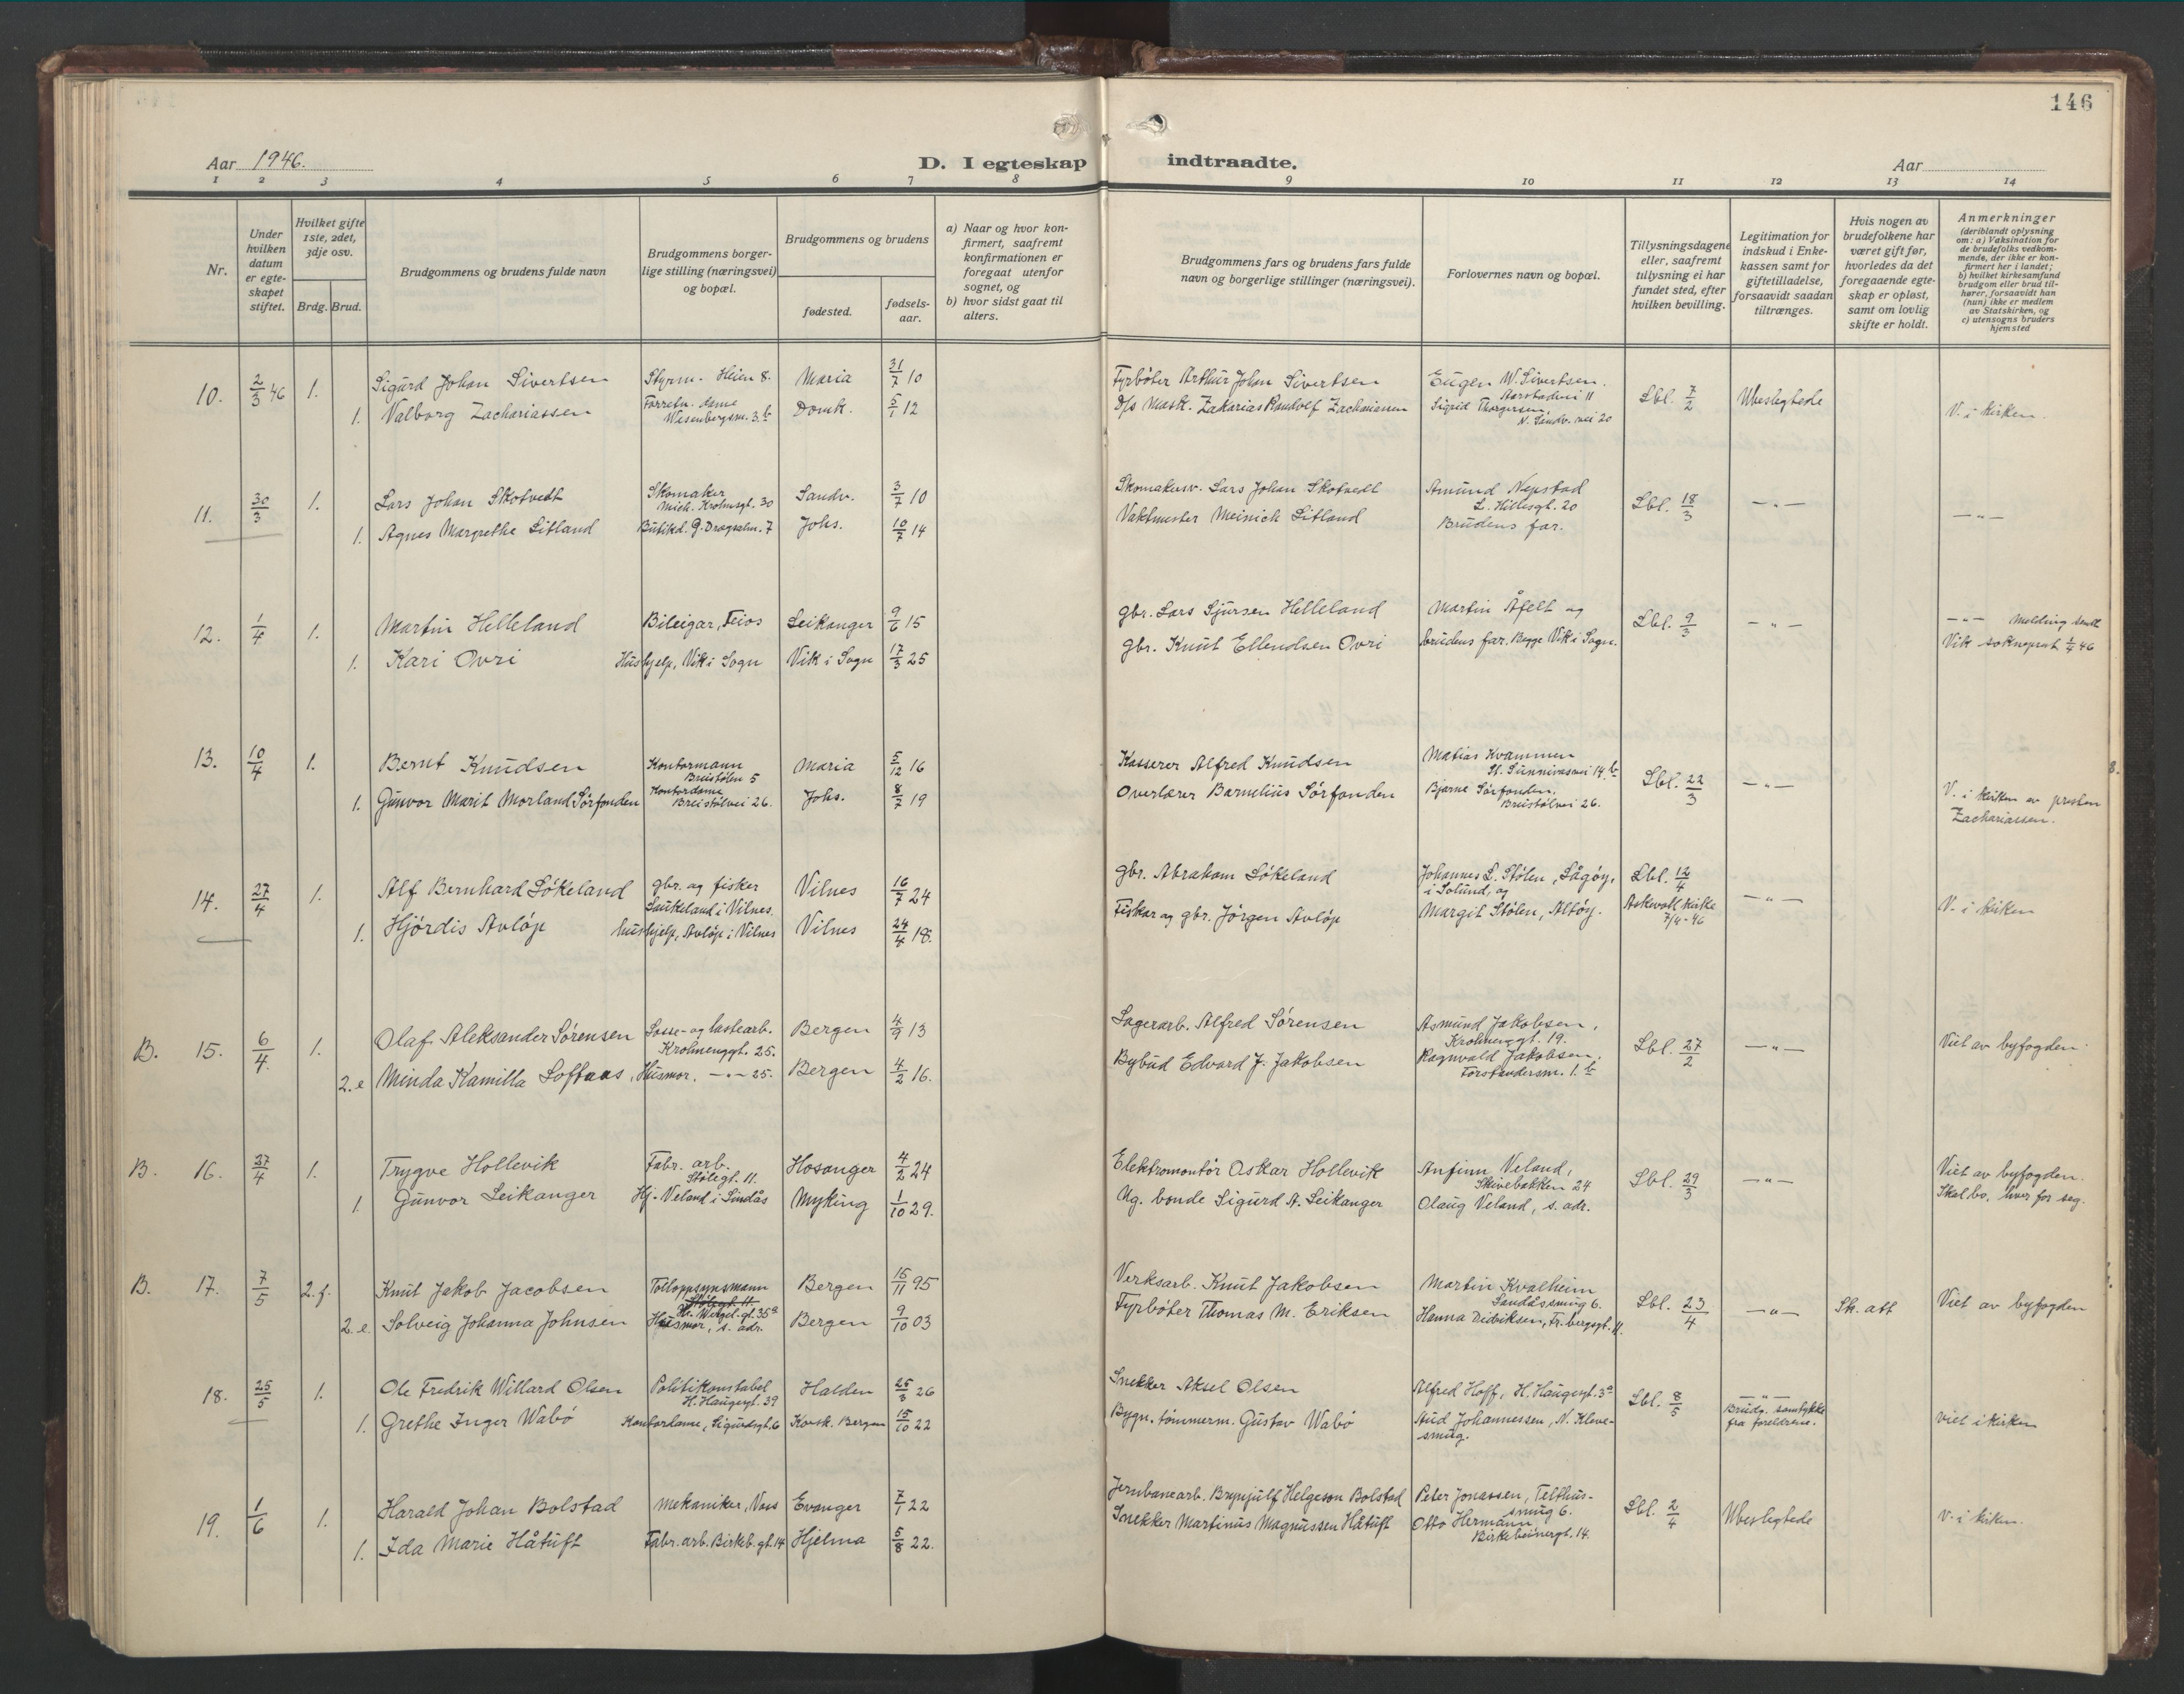 146
Aar 1946.
D. I egteskap indtraadte.
Aar
1 2 3 4 5 6 7 8 9 10 11 12 13 14
Nr.
Under hvilken datum er egteskapet stiftet.
Hvilket gifte 1ste, 2det, 3dje osv.
Brdg. Brud.
Brudgommens og brudens fulde navn
Brudgommens borgerlige stilling (næringsvei) og bopæl.
Brudgommens og brudens
fødested.
fødselsaar.
a) Naar og hvor konfirmert, saafremt konfirmationen er foregaat utenfor sognet, og
b) hvor sidst gaat til alters.
Brudgommens fars og brudens fars fulde navn og borgerlige stillinger (næringsvei).
Forlovernes navn og bopæl.
Tillysningsdagene eller, saafremt tillysning ei har fundet sted, efter hvilken bevilling.
Legitimation for indskud i Enkekassen samt for giftetilladelse, forsaavidt saadan tiltrænges.
Hvis nogen av brudefolkene har været gift før, hvorledes da det foregaaende egteskap er opløst, samt om lovlig skifte er holdt.
Anmerkninger (deriblandt oplysning om: a) Vaksination for de brudefolks vedkommende, der ikke er konfirmert her i landet; b) hvilket kirkesamfund brudgom eller brud tilhører, forsaavidt han (hun) ikke er medlem av Statskirken, og c) utensogns bruders hjemsted
10. 2/3 46 1. Sigurd Johan Sivertsen Styrm. Heien 8. Maria 31/7 10 Fyrbøter Arthur Johan Sivertsen Eugen W. Sivertsen. Aarstadvei 11 Lbl. 7/2 Ubeslegtede
1. Valborg Zachariassen Forretn. dame Wesenbergsm. 3.b Domk. 5/1 12 D/s Mask. Zakarias Randolf Zachariassen Sigrid Thorgersen, N. Sandv. vei 20 V. i kirken.
11. 30/3 1. Lars Johan Skotvedt Skomaker Mich. Krohnsgt. 30 Sandv. 3/7 10 Skomakersv. Lars Johan Skotvedt Amund Nepstad L. Hillesgt. 20 Lbl. 18/3 —"—
1. Agnes Margrethe Litland Butikd. G. Dragsalm. 7 Johs. 10/7 14 Vaktmester Meinich Litland Brudens far. —"—
12. 1/4 1. Martin Helleland Bileigar, Feios Leikanger 9/6 15 gbr. Lars Sjursen Helleland Martin Åfelt og Lbl. 9/3 —"— —"— Melding sendt
1. Kari Ovri Hushjelp, Vik i Sogn Vik i Sogn 17/3 25 gbr. Knut Ellendsen Ovri brudens far. Begge Vik i Sogn. Vik sokneprest 1/4 46
13. 10/4 1. Bernt Knudsen Kontormann Breistølen 5 Maria 5/12 16 Kasserer Alfred Knudsen Matias Kvammen St. Sunnivasvei 14.b Lbl. 22/3 —"—
1. Gunvor Marit Morland Sørfonden Kontordame Breistølvei 26. Johs. 8/7 19 Overlærer Barnelius Sørfonden Bjarne Sørfonden. Breistølvei 26. V. i kirken av presten Zachariassen.
14. 27/4 1. Alf Bernhard Løkeland gbr. og fisker Laukeland i Vilnes. Vilnes 16/7 24 gbr. Abraham Løkeland Johannes L. Stølen, Lågøy, i Solund, og Lbl. 12/4 —"—
1. Hjørdis Avløp hushjelp, Avløp i Vilnes Vilnes 24/4 18. Fiskar og gbr. Jørgen Avløp Margit Stølen, Altøy. Askvoll kirke 7/4-46 V. i kirken
B. 15. 6/4. 1. Olaf Aleksander Sørensen Losse- og lastearb. Krohnenggt. 25. Bergen 4/9 13 Lagerarb. Alfred Sørensen Asmund Jakobsen, Krohnenggt. 19. Lbl. 27/2 —"— Viet av byfogden.
2.e Minda Kamilla Loftaas, Husmor. —"— 25. Bergen 4/2 16. Bybud Edvard J. Jakobsen Ragnvald Jakobsen, Forstandersm. 1.b
B. 16. 27/4 1. Trygve Hollevik Fabr. arb. Stølegt. 11. Hosanger 4/2 24 Elektromontør Oskar Hollevik Anfinn Veland, Skivebakken 24 Lbl. 29/3 —"— Viet av byfogden.
1. Gunvor Leikanger Hj. Veland i Lindås Myking 1/10 29. Ug. bonde Sigurd A. Leikanger Olaug Veland, s. adr. Skal bo hver for seg.
B. 17. 7/5 2.f. Knut Jakob Jacobsen Tolloppsynsmann Stølegt. 11. H. Wergel. gt. 35a Bergen 15/11 95 Verksarb. Knut Jakobsen Martin Kvalheim Sandåssmug 6. Lbl. 23/4 —"— Sk. att Viet av byfogden
2.e. Solveig Johanna Johnsen Husmor, s. adr. Bergen 9/10 03 Fyrbøter Thomas M. Eriksen Hanna Didriksen, Fr. bergsgt. 11.
18. 25/5 1. Ole Fredrik Willard Olsen Politikonstabel H. Haugesgt. 39 Halden 25/3 26 Snekker Aksel Olsen Alfred Hoff, H. Haugesgt. 3a Lbl. 8/5 —"— Brudg. samtykke fra foreldrene.
1. Grethe Inger Wabø Kontordame, Sigurdsgt. 6 Korsk. Bergen 15/10 22 Bygn. tømmerm. Gustav Wabø Aud Johannessen, N. Klevesmug. viet i kirken
19. 1/6 1. Harald Johan Bolstad Mekaniker, Voss Evanger 7/1 22 Jernbanearb. Brynjulf Helgeson Bolstad Peter Jonassen, Telthussmug 6. Lbl. 2/4 Ubeslegtede V. i kirken.
1. Ida Marie Håtuft Fabr. arb. Birkeb. gt. 14 Hjelma 5/8 22. Snekker Martinus Magnussen Håtuft Otto Hermann Birkebeinergt. 14.